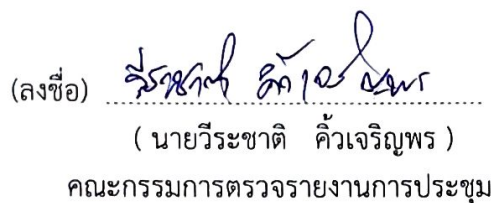 (ลงชื่อ) วีระชาติ คิ้วเจริญพร
( นายวีระชาติ คิ้วเจริญพร )
คณะกรรมการตรวจรายงานการประชุม